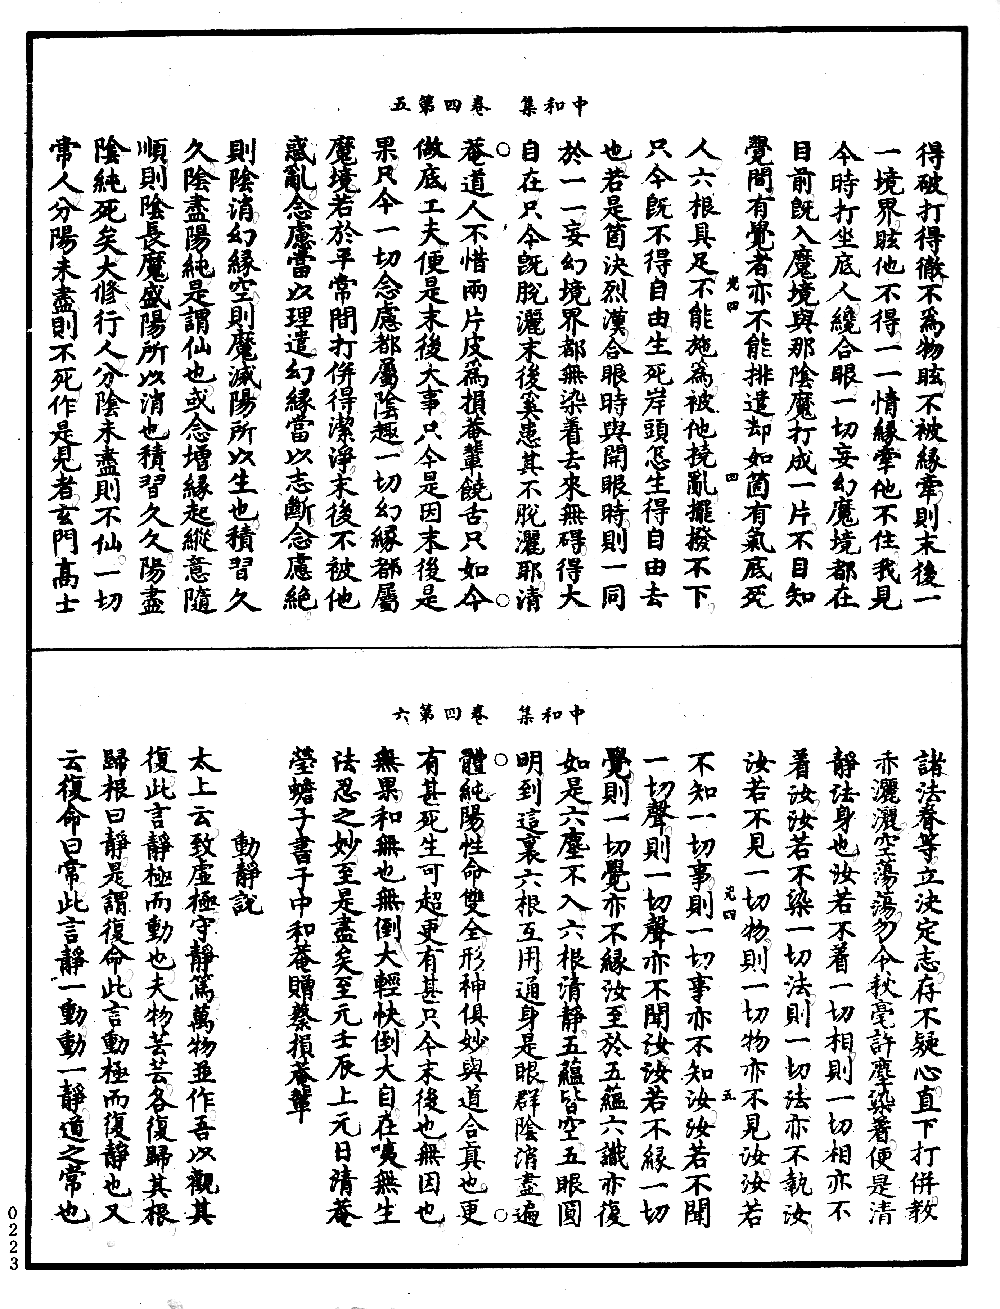 中和集　卷四第五
得破打得徹不爲物眩不被緣牽則末後一
一境界眩他不得一一情緣牽他不住我見
今時打坐底人纔合眼一切妄幻魔境都在
目前旣入魔境與那陰魔打成一片不自知
覺間有覺者亦不能排遣却如箇有氣底死
光四　四
人六根具足不能施爲被他撓亂擺撥不下
只今旣不得自由生死岸頭怎生得自由去
也若是箇決烈漢合眼時與開眼時則一同
於一一妄幻境界都無染着去來無碍得大
自在只今旣脫灑末後奚患其不脫灑耶清
菴道人不惜兩片皮爲損菴輩饒舌只如今
做底工夫便是末後大事只今是因末後是
果只今一切念慮都屬陰趣一切幻緣都屬
魔境若於平常間打併得潔淨末後不被他
惑亂念慮當以理遣幻緣當以志斷念慮絕
則陰消幻緣空則魔滅陽所以生也積習久
久陰盡陽純是謂仙也或念增緣起縱意隨
順則陰長魔盛陽所以消也積習久久陽盡
陰純死矣大修行人分陰未盡則不仙一切
常人分陽未盡則不死作是見者玄門高士
中和集　卷四第六
諸法眷等立決定志存不疑心直下打併教
赤灑灑空蕩蕩勿令秋毫許塵染着便是清
靜法身也汝若不着一切相則一切相亦不
着汝汝若不染一切法則一切法亦不執汝
汝若不見一切物則一切物亦不見汝汝若
光四　五
不知一切事則一切事亦不知汝汝若不聞
一切聲則一切聲亦不聞汝汝若不緣一切
覺則一切覺亦不緣汝至於五蘊六識亦復
如是六塵不入六根清靜五蘊皆空五眼圓
明到這裏六根互用通身是眼群陰消盡遍
體純陽性命雙全形神俱妙與道合真也更
有甚死生可超更有甚只今末後也無因也
無果和無也無倒大輕快倒大自在咦無生
法忍之妙至是盡矣至元壬辰上元日清菴
瑩蟾子書于中和菴贈蔡損菴輩
動靜說
太上云致虛極守靜篤萬物並作吾以觀其
復此言靜極而動也夫物芸芸各復歸其根
歸根曰靜是謂復命此言動極而復靜也又
云復命曰常此言靜一動動一靜道之常也
0223